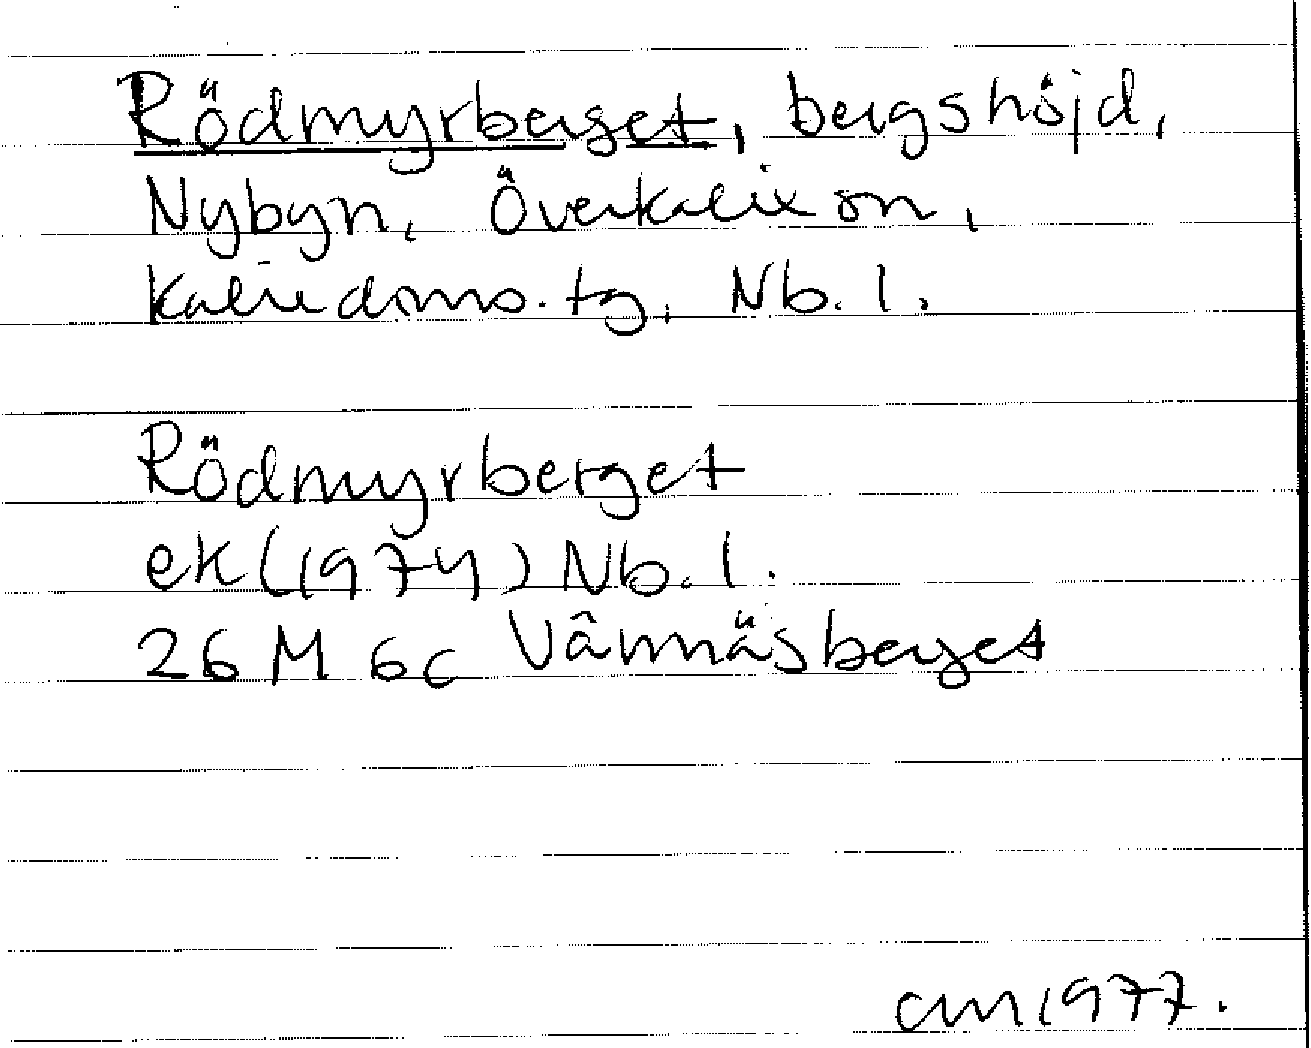 Rödmyrberget, bergshöjd,
Nybyn, Överkalix sn,
Kalix doms. tg, Nb. l.
Rödmyrberget
ek (1974) Nb. l.
26 M 6c Vännäsberget
cm 1977.